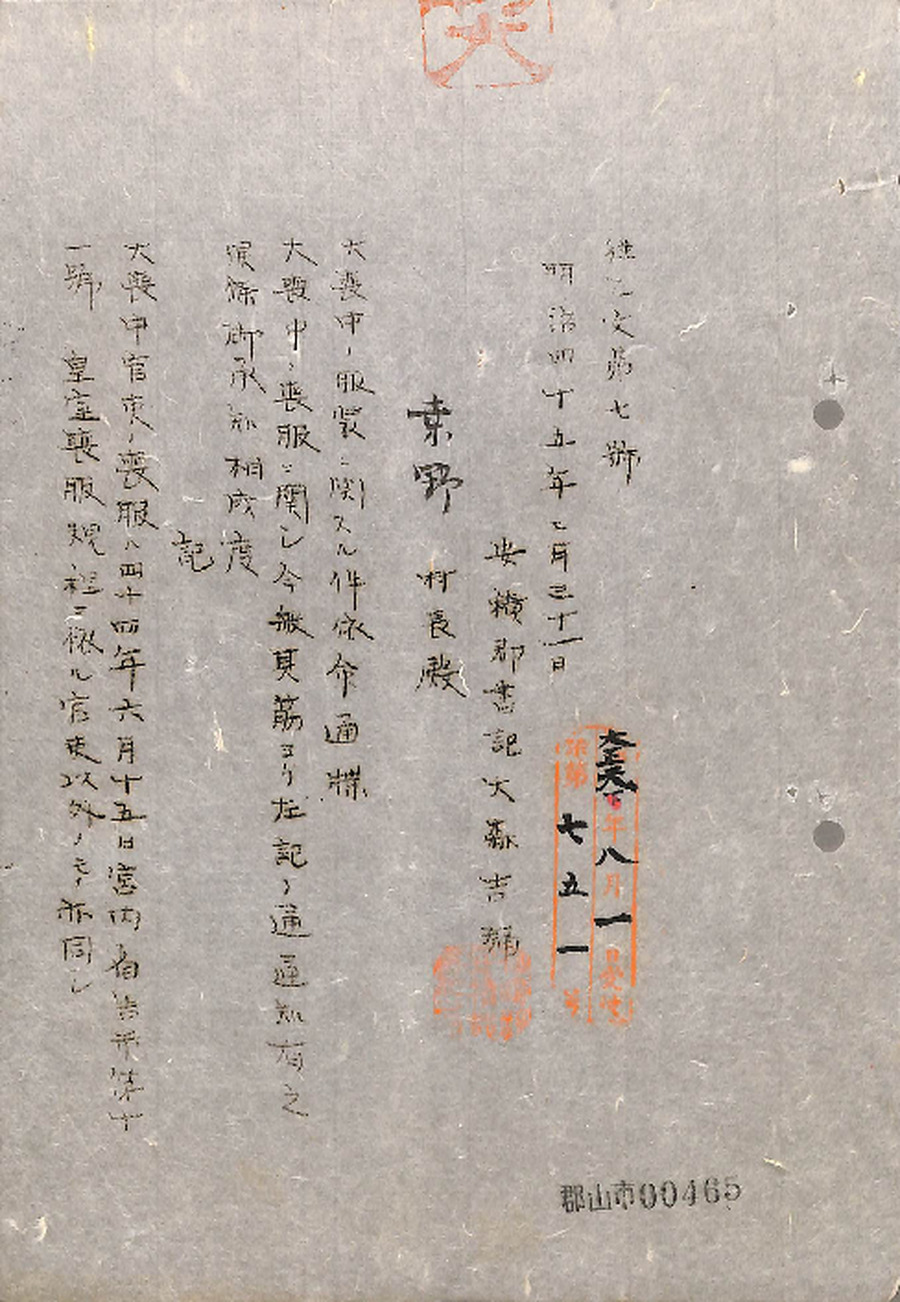 進乙文第七號
明治四十五年七月三十一日
安積郡書記大森吉彌
桑野 村長殿
大喪中ノ服裝ニ関スル件依命通牒
大喪中ノ喪服ニ関シ今般其筋ヨリ左記ノ通通知有之
候條御承知相成度
記
大喪中官吏ノ喪服ハ四十四年六月十五日宮内省告示第十
一號 皇室喪服規程ニ依ル官吏以外ノモノ亦同シ
大正元年八月一日受付
第七五一号
郡山市00465